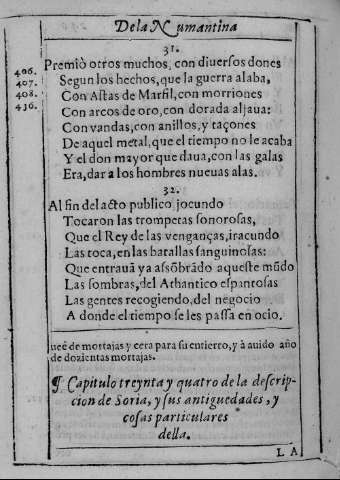 De la Numantina
31.
406.
407.
408.
436.
Premiò otros muchos, con diuersos dones
Segun los hechos, que la guerra alaba,
Con Astas de Marfil, con morriones
Con arcos de oro, con dorada aljaua:
Con vandas, con anillos, y taçones
De aquel metal, que el tiempo no le acaba
Y el don mayor que daua, con las galas
Era, dar a los hombres nueuas alas.
32.
Al fin del acto publico, jocundo
Tocaron las trompetas sonorosas,
Que el Rey de las venganças, iracundo
Las toca, en las batallas sanguinosas:
Que entrauã ya assõbrãdo aqueste mũdo
Las sombras, del Athantico espantosas
Las gentes recogiendo, del negocio
A donde el tiempo se les passa en ocio.
ueē de mortajas y cera para su entierro, y à auido año
de dozientas mortajas.
¶ Capitulo treynta y quatro de la descrip-
cion de Soria, y sus antiguedades, y
cosas particulares
della.
L A